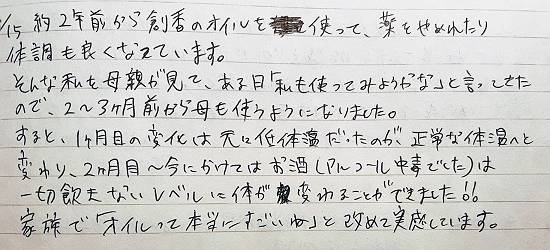 /15 約2年前から創香のオイルを使って、薬をやめれたり
体調も良くなっています。
そんな私を母親が見て、ある日「私も使ってみようかな」と言ってきた
ので、2〜3ヶ月前から母も使うようになりました。
すると、1ヶ月目の変化は元々低体温だったのが、正常な体温へと
変わり、2ヶ月目〜今にかけてはお酒(アルコール中毒でした)は
一切飲まないレベルに体が変わることができました!!
家族で「オイルって本当にすごいね」と改めて実感しています。